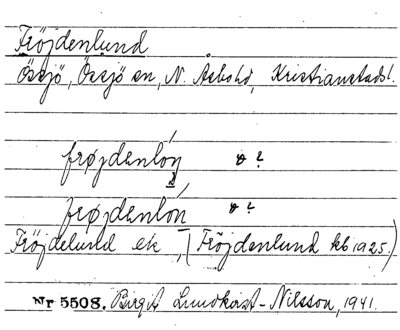 Fröjdenlund
Össjö, Össjö sn, N. Åsbohd, Kristianstads l.
frøjdenlón ɔ ?
frøjdenlón ɔ ?
Fröjdelund ek, (Fröjdenlund kb 1925.)
Nr 5508. Birgit Lundkvist-Nilsson, 1941.